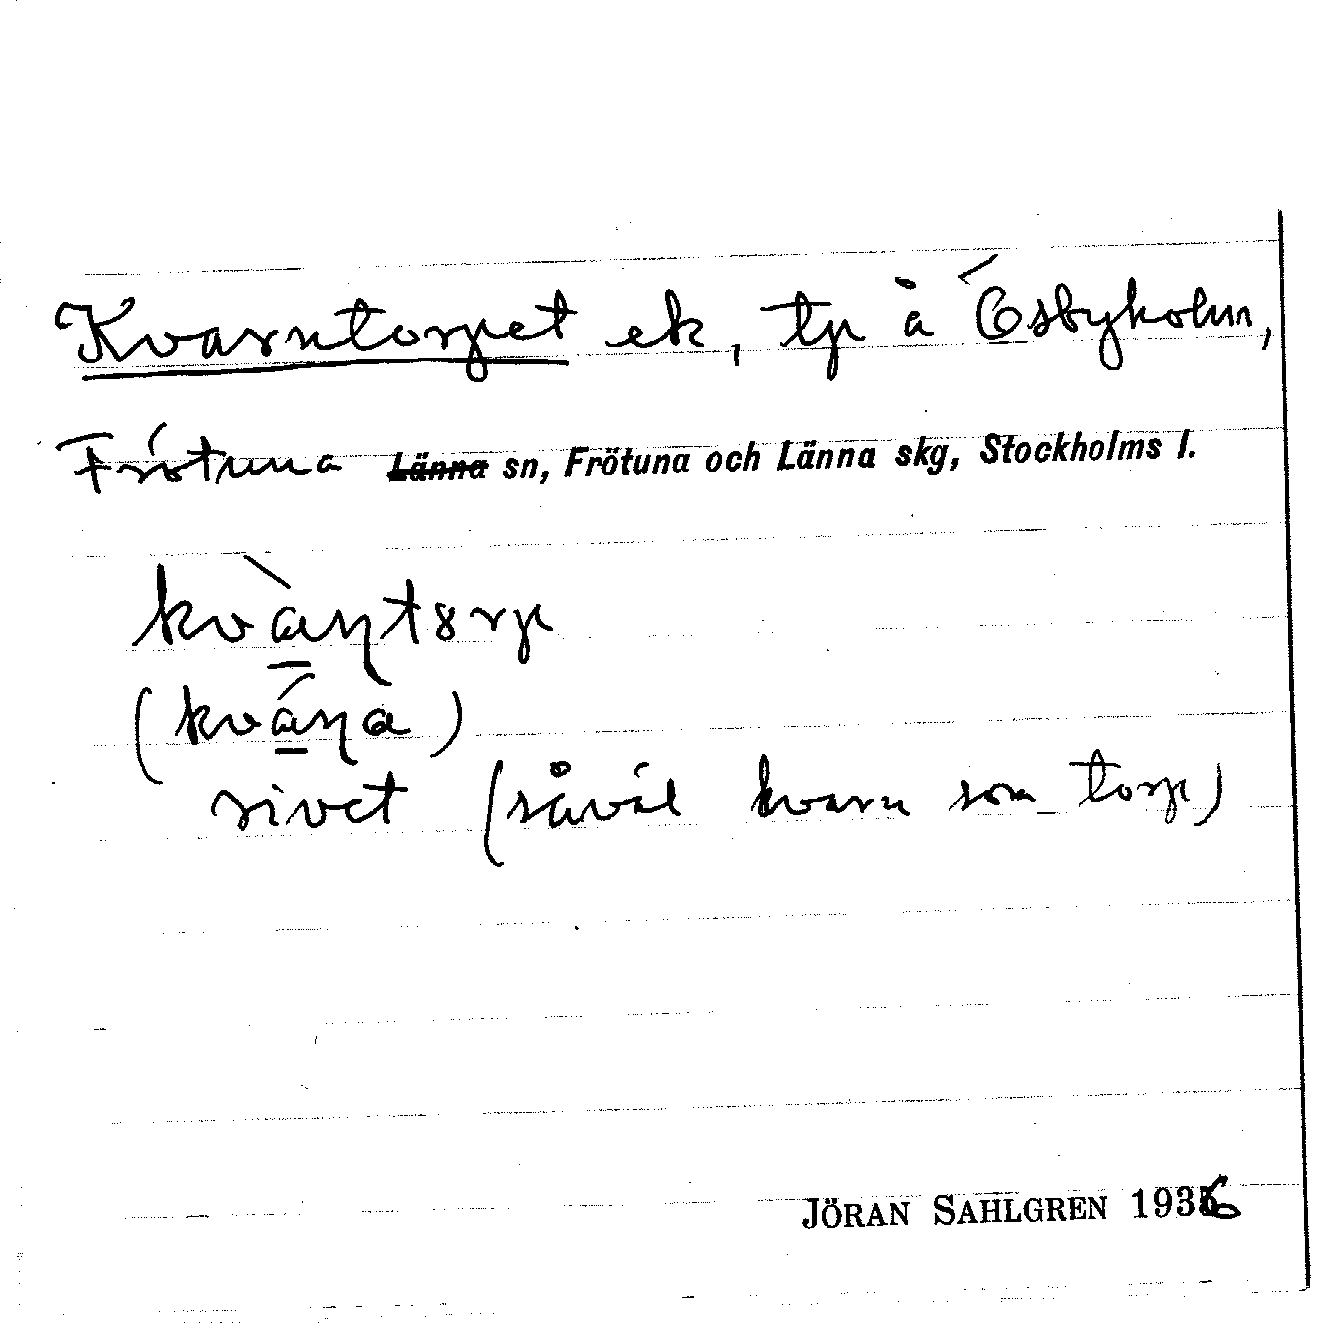 Kvarntorpet ek, tp å Ösbyholm,
Frötuna Länna sn, Frötuna och Länna skg, Stockholms l.
kvàṇt8rp
(kváṇa)
rivet (såväl kvarn som torp)
JÖRAN SAHLGREN 1936